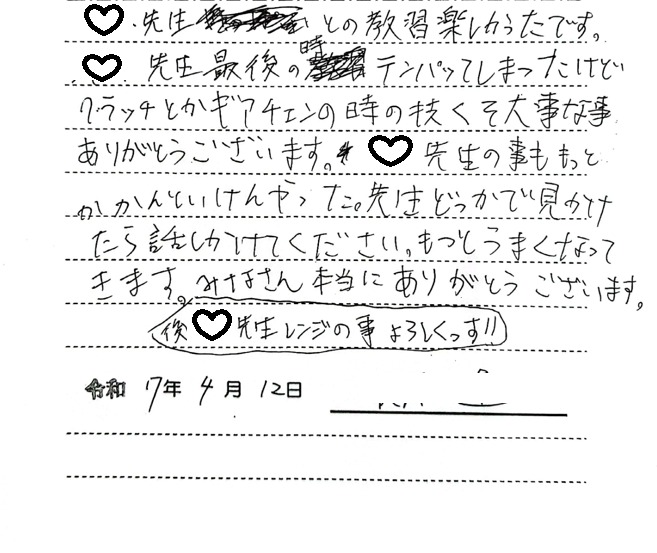 ♡先生との教習楽しかったです。
♡先生最後の時テンパッてしまったけど
クラッチとかギアチェンの時の技くそ大事な事
ありがとうございます。♡先生の事ももっと
かかんといけんやった。先生どっかで見かけ
たら話しかけてください。もっとうまくなって
きます。みなさん本当にありがとうございます。
後♡先生レンジの事よろしくっす!!
令和 7年 4月 12日